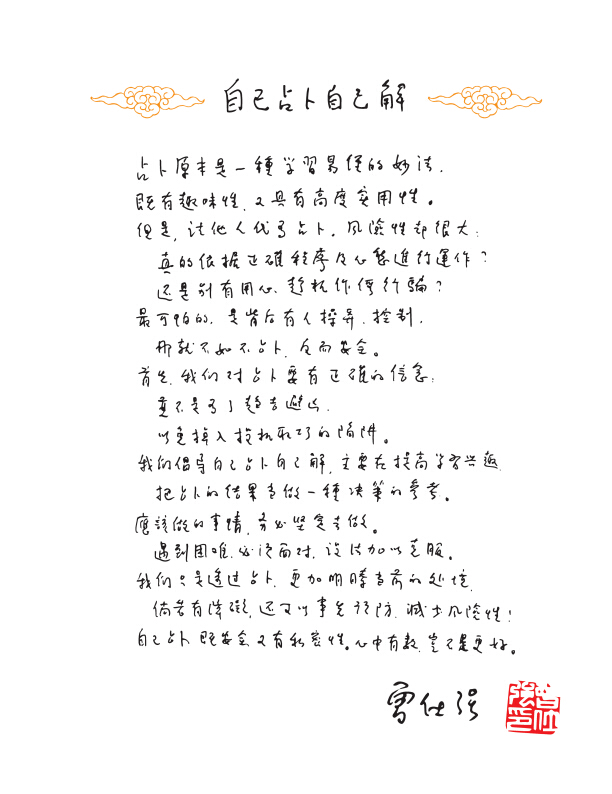 自己占卜自己解
占卜原本是一種学習易经的妙法.
既有趣味性,又具有高度实用性。
但是,让他人代为占卜,风险性却很大:
真的依据正確程序及心態進行運作?
还是别有用心,趁机作便行騙?
最可怕的,是背后有人操弄,控制,
那就不如不占卜,反而安全。
首先,我们对占卜要有正確的信念:
並不是为了趋吉避凶,
以免掉入投机取巧的陷阱。
我们倡导自己占卜自己解,主要在提高学習兴趣,
把占卜的结果当做一種决策的参考。
應該做的事情,务必坚定去做。
遇到困难,必须面对,设法加以克服。
我们只是透过占卜,更加明瞭当前的处境,
倘若有障碍,还可以事先预防,减少风险性!
自己占卜既安全又有私密性。心中有数,岂不是更好。
曾仕强